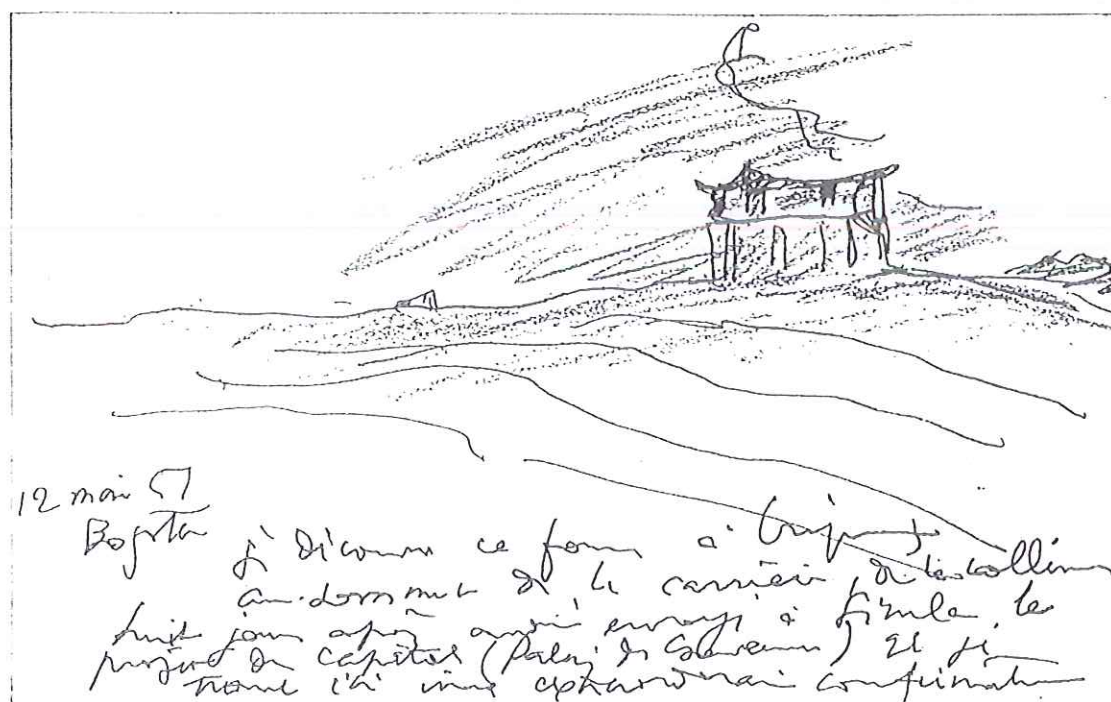 12 mai 51
Bogota
je découvre ce four à briques
au-dessus de la carrière, de la colline
huit jours après avoir envoyé à Simla le
projet du Capitol (Palais du Gouverneur) Et je
trouve ici une extraordinaire confirmation